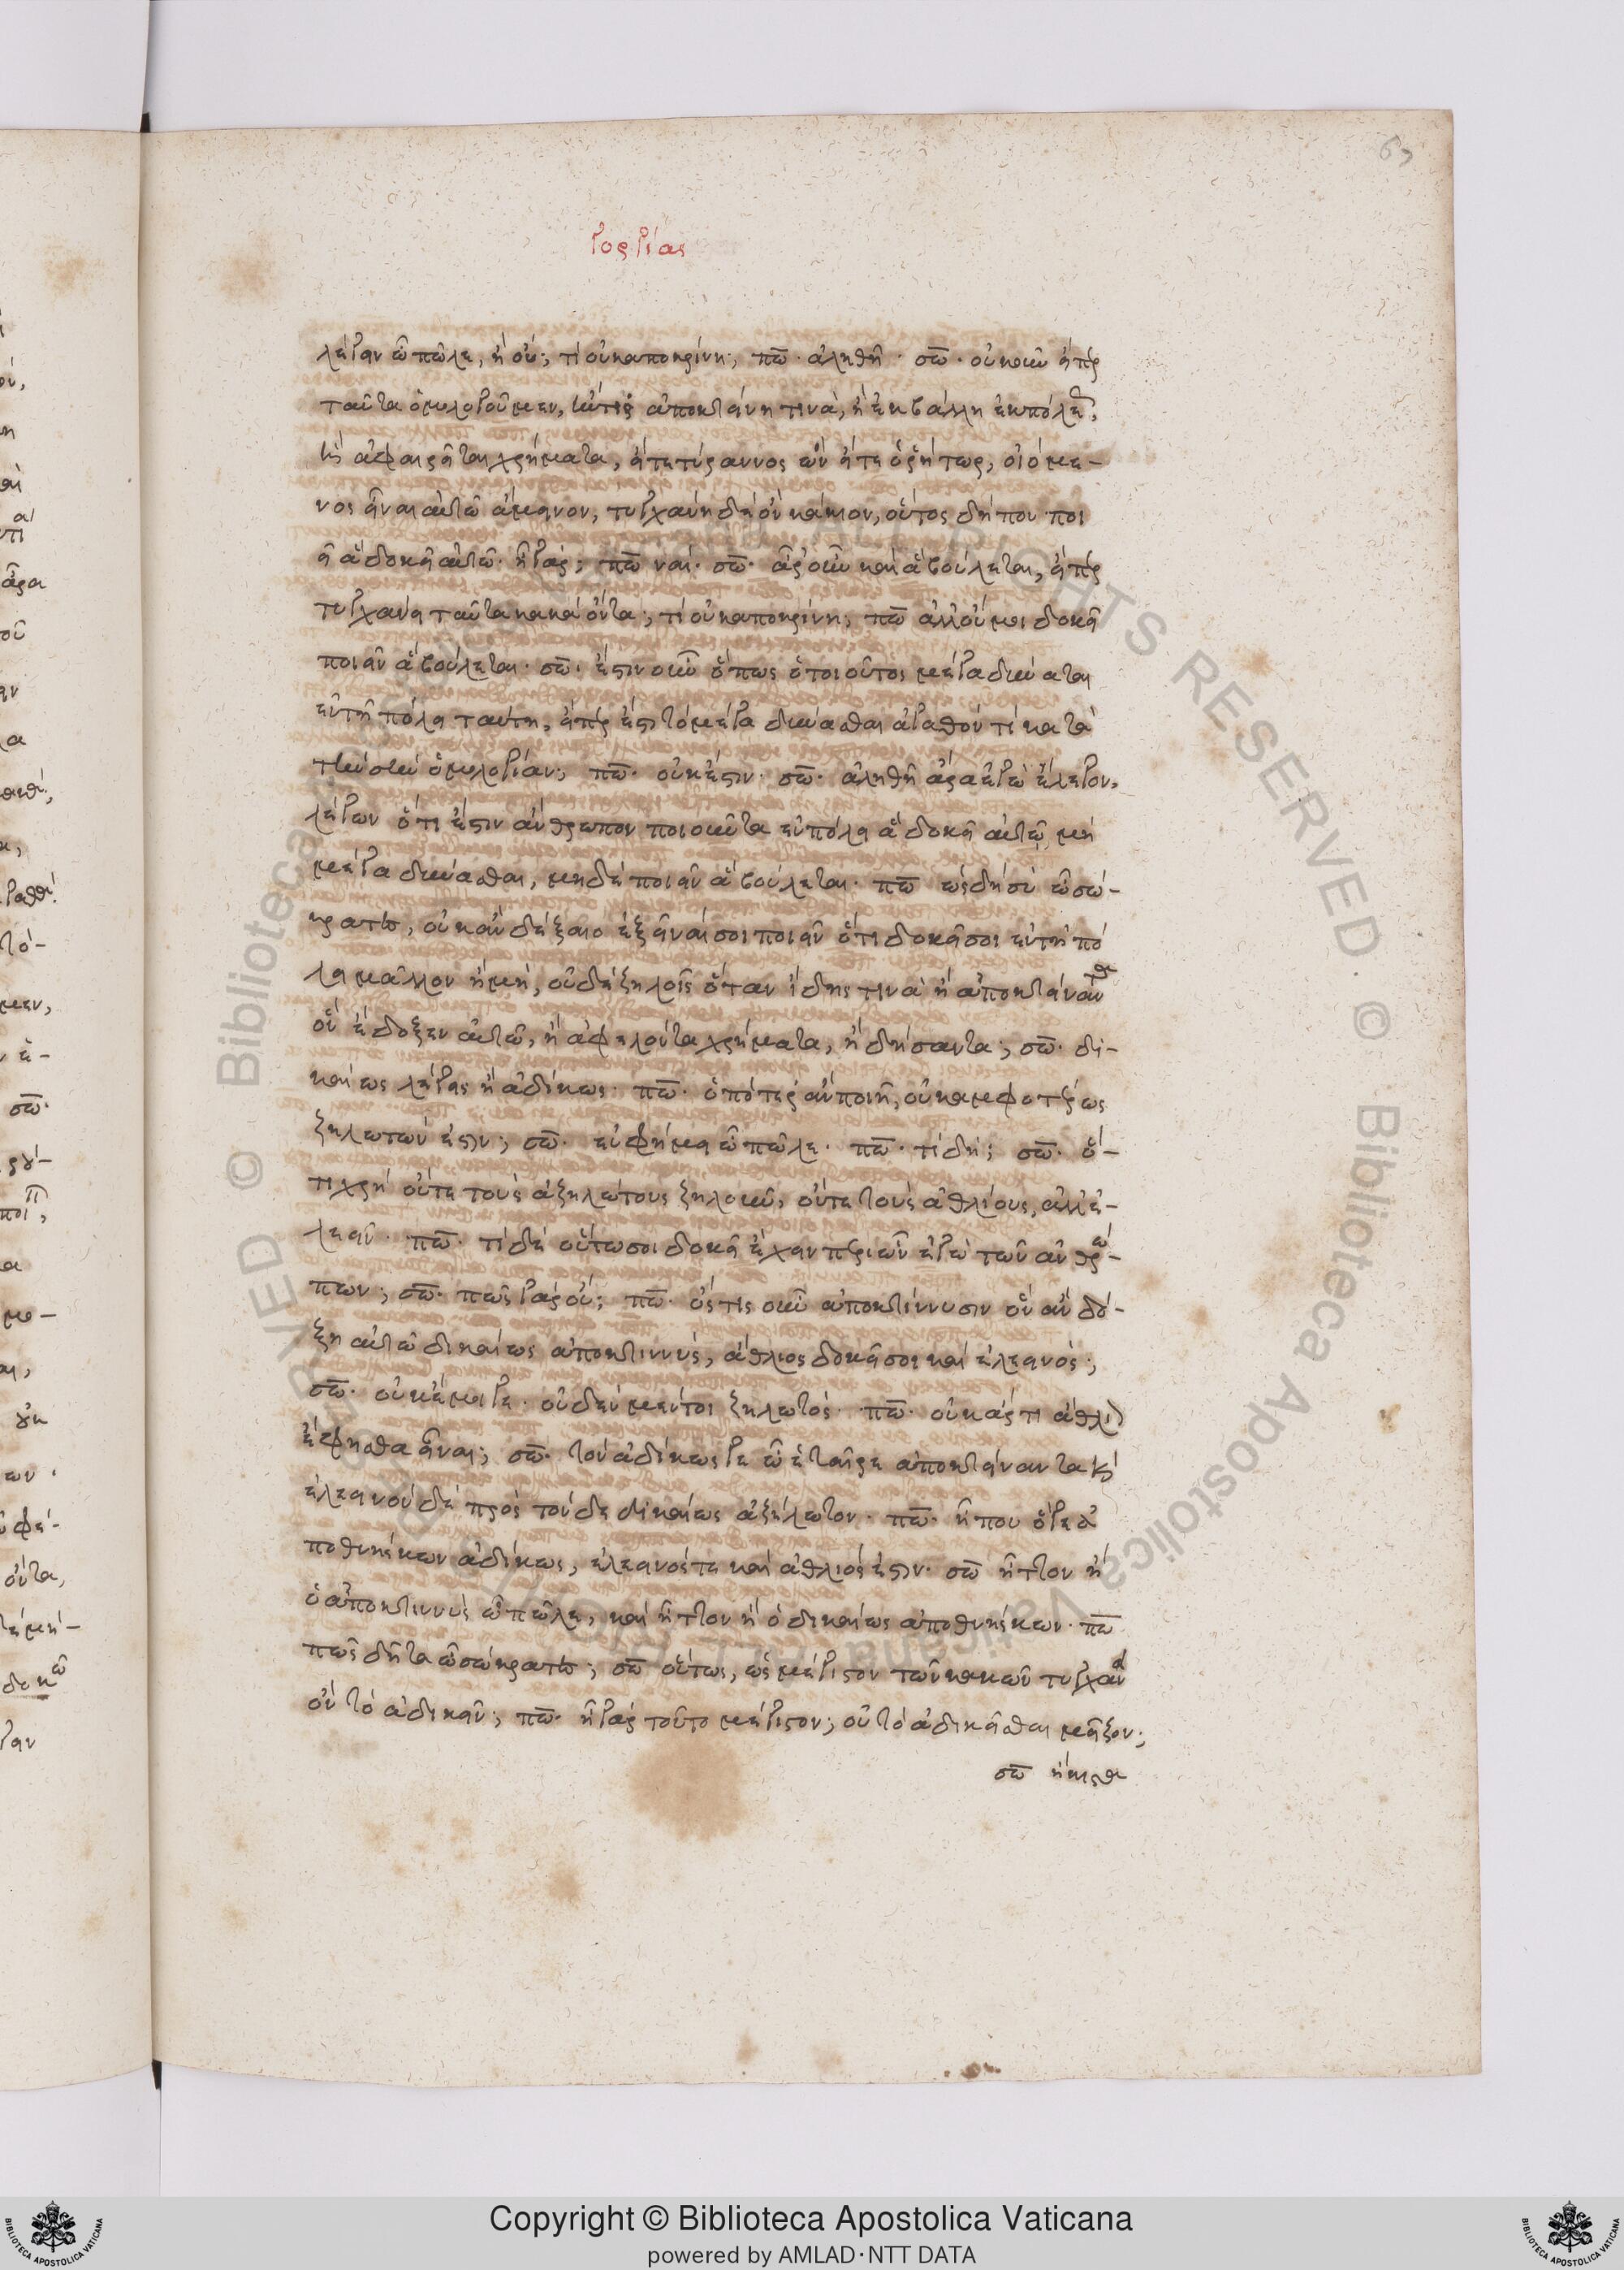 67
γοργίας
λέγειν ὦ πῶλε, ἢ οὔ; τί οὐκ αποκρίνη; πω̅· αληθῆ· σω̅· οὐκοῦν εἴπερ
ταῦτα ὁμολογοῦμεν, εἴ τις αποκτείνει τινὰ, ἢ ἐκβάλλει ἐκ πόλεως,
ἢ ἀφαιρεῖται χρήματα, εἴτε τύραννος ὢν εἴτε ῥήτωρ, οἰόμε-
νος εἶναι αὐτῶ ἄμεινον, τυγχάνει δὲ ὂν κάκιον, οὗτος δήπου ποι
εῖ ἃ δοκεῖ αὐτῶ· ἦ γάρ; πω̅ ναί· σω̅· ἆρ οὖν καὶ ἃ βούλεται, εἴπερ
τυγχάνει ταῦτα κακὰ ὄντα; τί οὐκ αποκρίνη; πω̅ ἀλλ οὔ μοι δοκεῖ
ποιεῖν ἃ βούλεται· σω̅· ἔστιν οὖν ὅπως ὁ τοιοῦτος μέγα δύναται
ἐν τῆ πόλει ταύτη, εἴπερ ἐστὶ τὸ μέγα δύνασθαι ἀγαθόν τι κατὰ
τὴν σὴν ὁμολογίαν; πω̅· οὐκ ἔστιν· σω̅· ἀληθῆ ἄρα ἐγὼ ἔλεγον,
λέγων ὅτι ἔστιν ἄνθρωπον ποιοῦντα ἐν πόλει ἃ δοκεῖ αὐτῷ, μὴ
μέγα δύνασθαι, μηδὲ ποιεῖν ἃ βούλεται· πω̅ ὡς δὴ σὺ ὦ σώ-
κρατες, οὐκ ἂν δέξαιο ἐξεῖναί σοι ποιεῖν ὅτι δοκεῖ σοι ἐν τῆ πό
λει μᾶλλον ἢ μή, οὐδὲ ζηλοῖς ὅταν ἴδης τινὰ ἢ ἀποκτείναντα
ὃν ἔδοξεν αὐτῶ, ἢ ἀφελόντα χρήματα, ἢ δήσαντα; σω̅· δι-
καίως λέγεις ἢ ἀδίκως· πω̅· ὁπότερ ἂν ποιῆ, οὐκ αμφοτέρως
ζηλωτόν ἐστιν; σω̅· εὐφήμει ὦ πῶλε· πω̅· τί δή; σω̅· ὅ-
τι χρὴ οὔτε τοὺς ἀζηλώτους ζηλοῦν, οὔτε τοὺς ἀθλίους, αλλ ἐ-
λεεῖν· πω̅· τί δέ οὕτω σοι δοκεῖ ἔχειν περὶ ὧν ἐγὼ τῶν ανθρώ-
πων; σω̅· πῶς γὰρ οὔ; πω̅· ὅστις οὖν αποκτίννυσιν ὃν ἂν δό-
ξη αὐτῶ δικαίως αποκτιννὺς, ἄθλιος δοκεῖ σοι καὶ ἐλεεινός;
σω̅· οὐκ ἔμοιγε· οὐδὲν μέντοι ζηλωτός· πω̅· οὐκ άρτι ἄθλιον
ἔφησθα εἶναι; σω̅· τὸν ἀδίκως γε ὦ ἑταῖρε ἀποκτείναντα καὶ
ἐλεεινὸν δὲ πρός τὸν δε δικαίως ἀζήλωτον· πω̅· ἦ που ὅ γε ἀ
ποθνήσκων ἀδίκως, ἐλεεινός τε καὶ ἄθλιός ἐστιν· σω̅ ἧττον ἢ
ὁ ἀποκτιννὺς ὦ πῶλε, καὶ ἧττον ἢ ὁ δικαίως αποθνήσκων· πω̅
πῶς δῆτα ὦ σώκρατες; σω̅ οὕτως, ὡς μέγιστον τῶν κακῶν τυγχάνει
ὂν τὸ ἀδικεῖν; πω̅· ἦ γάρ τοῦτο μέγιστον; οὐ τὸ ἀδικεῖσθαι μεῖζον;
σω̅ ἥκιστα